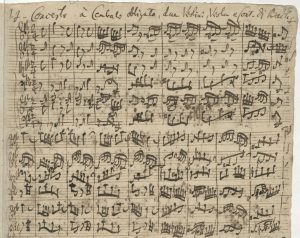 J.J. Concerto à Cembalo obligato, due Violini, Viola e Cont. di